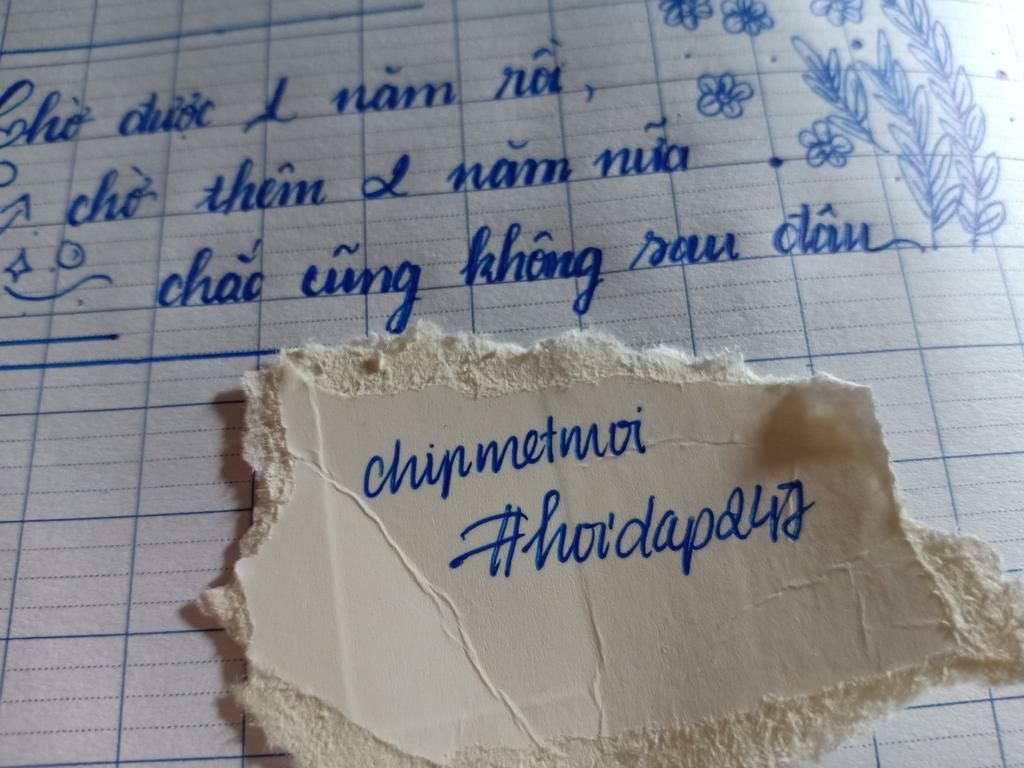 Chờ được 1 năm rồi,
chờ thêm 2 năm nữa
chắc cũng không sau đâu
chipmetmoi
#hoidap247